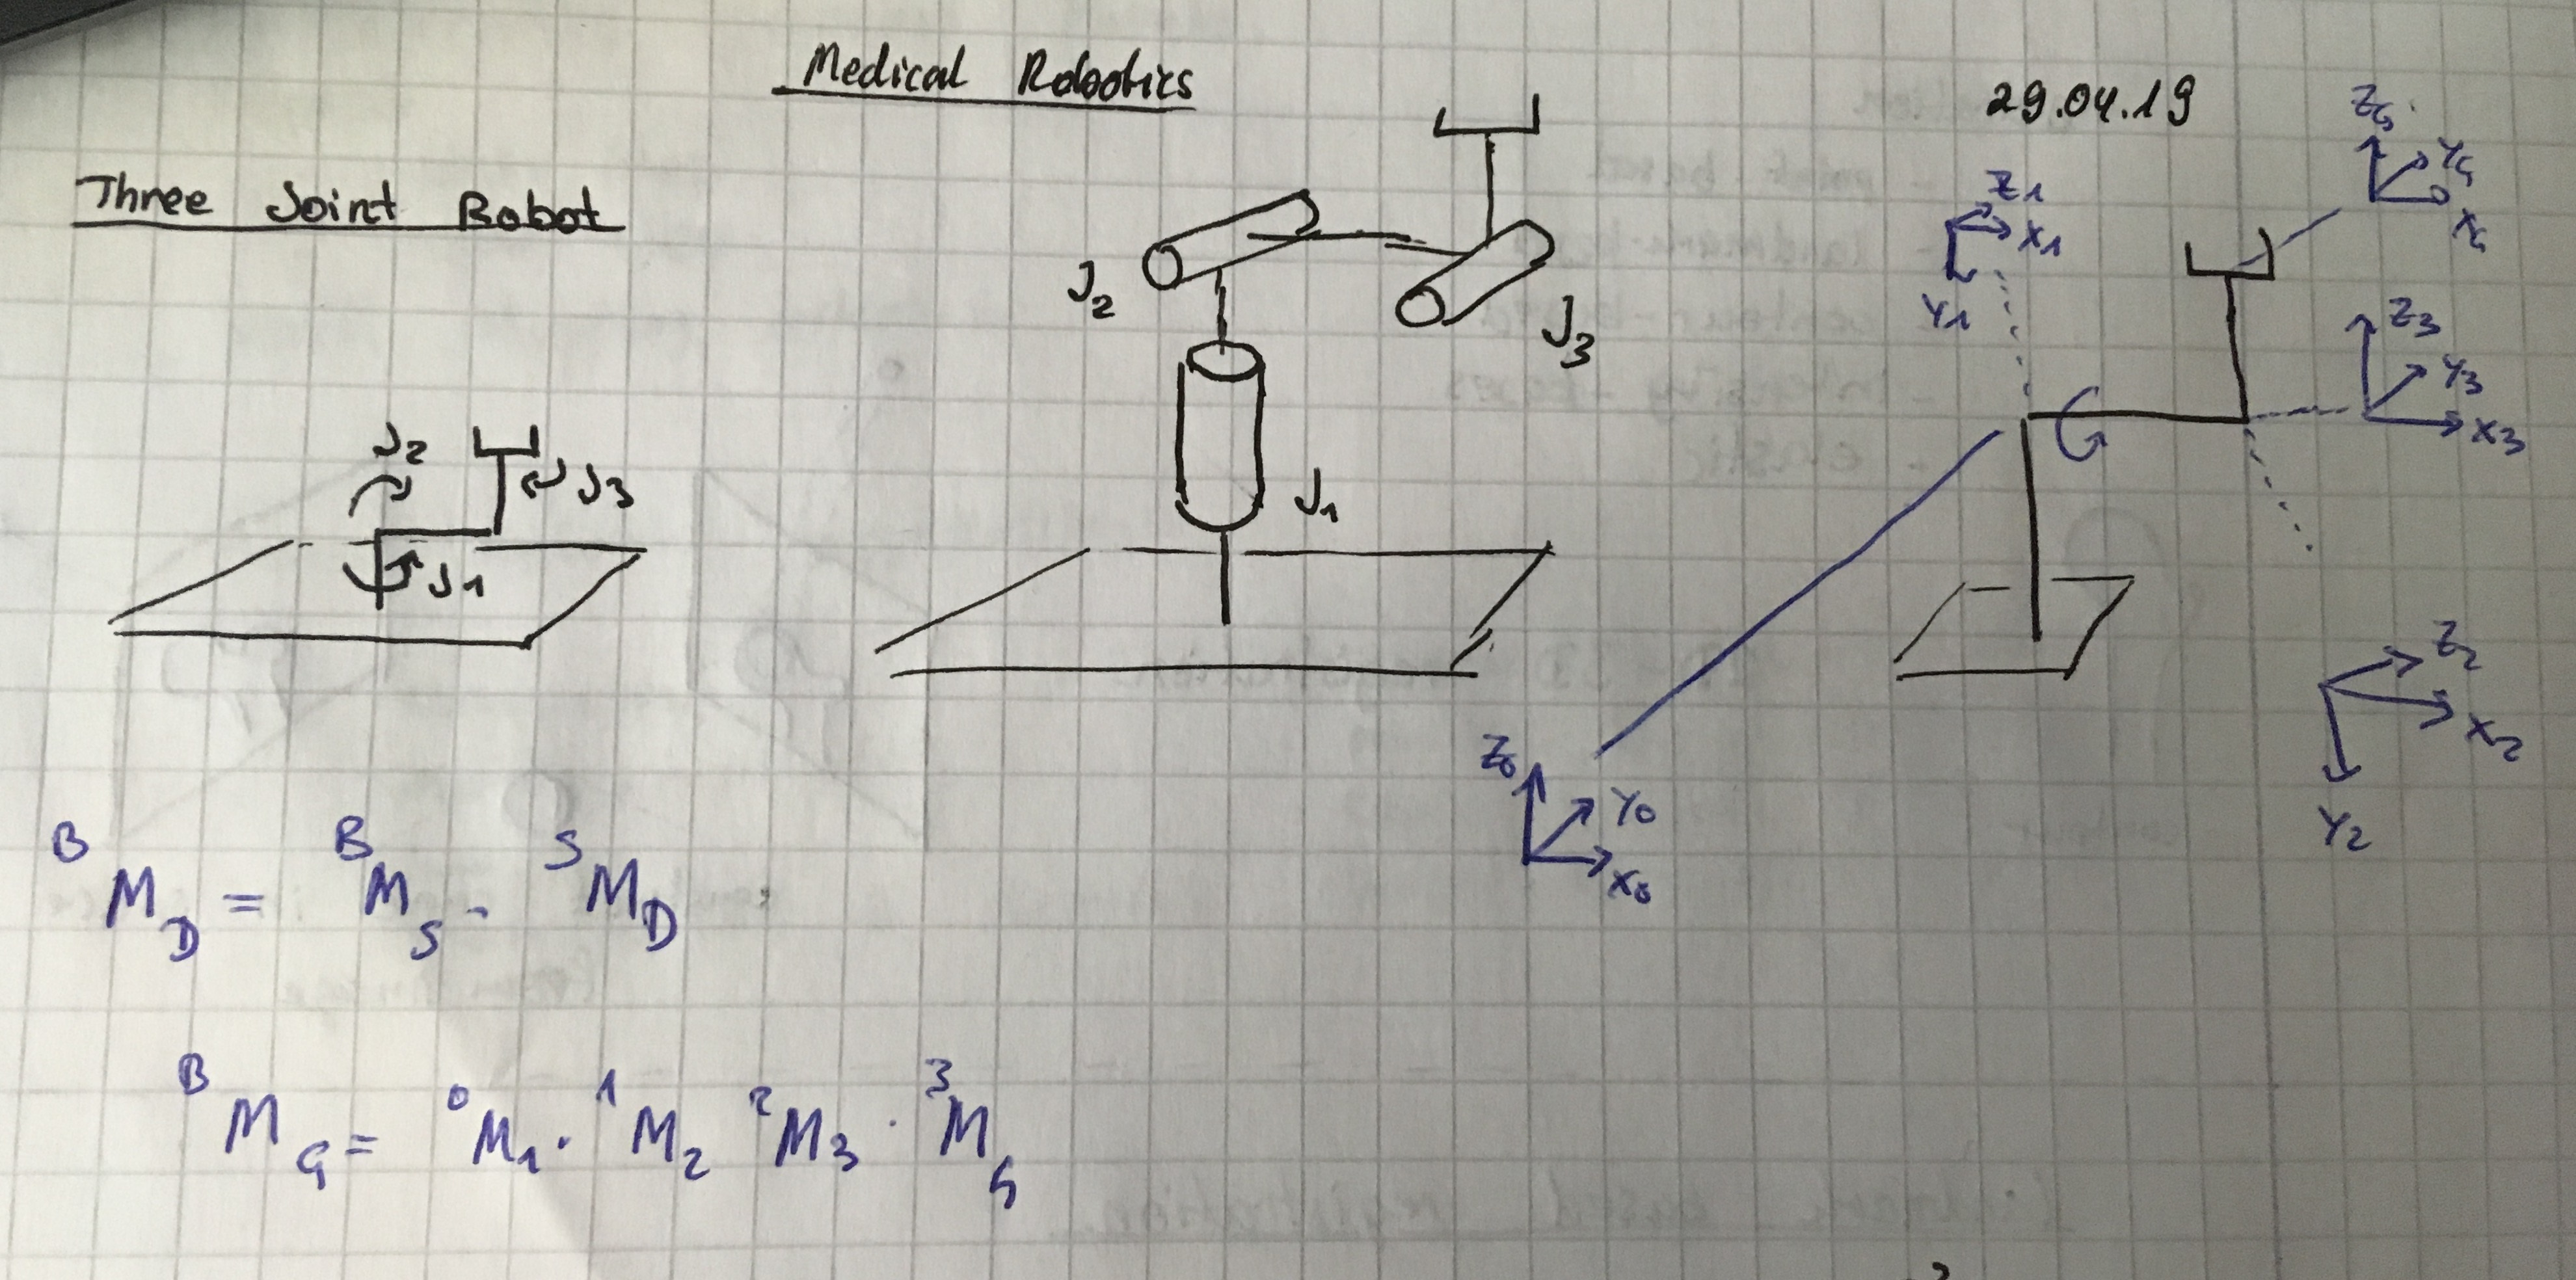 Medical Robotics
29.04.19
Three Joint Robot
J2
J1
J3
J2
J1
J3
Z0
Y0
X0
Z1
X1
Y1
Z4
Y4
X4
Z3
Y3
X3
Z2
X2
Y2
ᴮM_D = ᴮM_S · ˢM_D
ᴮM₄ = ⁰M₁ · ¹M₂ ²M₃ · ³M₄